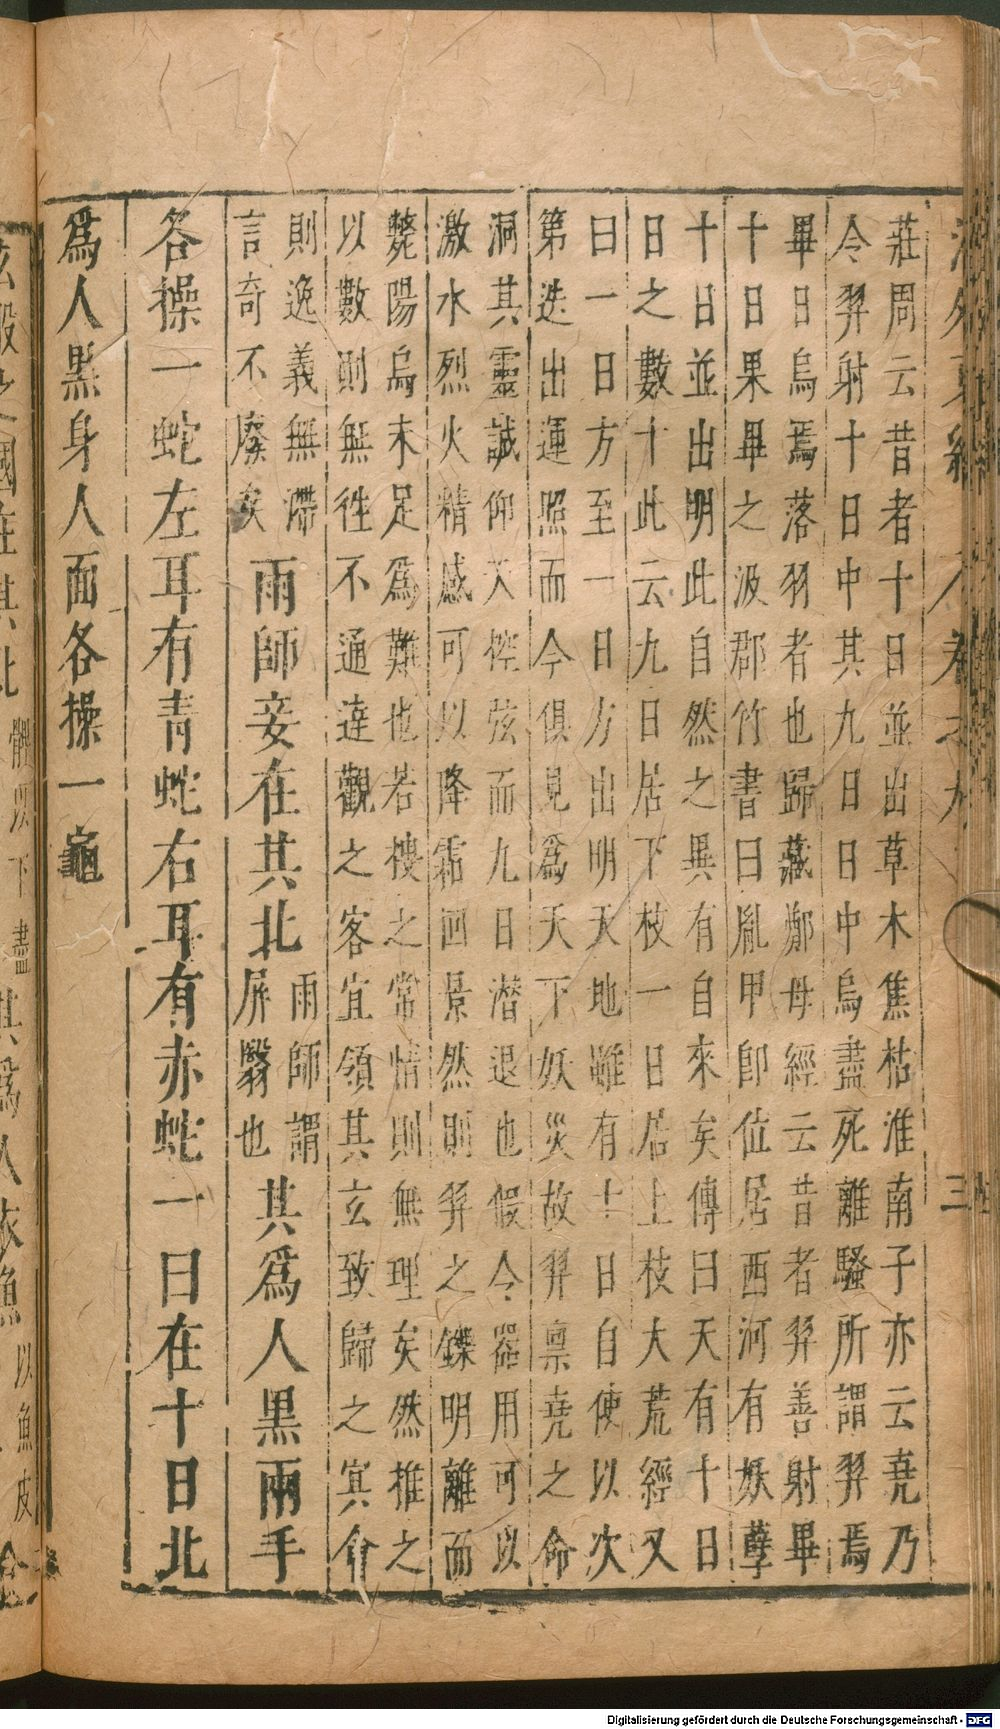 海外東經 卷之九 三
莊周云昔者十日並出草木焦枯淮南子亦云堯乃
令羿射十日中其九日日中烏盡死離騷所謂羿焉
畢日烏焉落羽者也歸藏鄭母經云昔者羿善射畢
十日果畢之汲郡竹書曰胤甲卽位居西河有妖孽
十日並出明此自然之異有自來矣傳曰天有十日
日之數十此云九日居下枝一日居上枝大荒經又
曰一日方至一日方出明天地雖有十日自使以次
第迭出運照而今俱見爲天下妖災故羿稟堯之命
洞其靈誠仰天控弦而九日潛退也假令器用可以
激水烈火精感可以降霜回景然則羿之鑠明離而
斃陽烏未足爲難也若搜之常情則無理矣然推之
以數則無徃不通達觀之客宜領其玄致歸之冥會
則逸義無滯
言奇不廢矣
雨師妾在其北
雨師謂
屏翳也
其爲人黑兩手
各操一蛇左耳有青蛇右耳有赤蛇一曰在十日北
爲人黑身人面各操一龜
玄股之國在其北
髀以下盡
其爲人衣魚
以魚皮
Digitalisierung gefördert durch die Deutsche Forschungsgemeinschaft - DFG